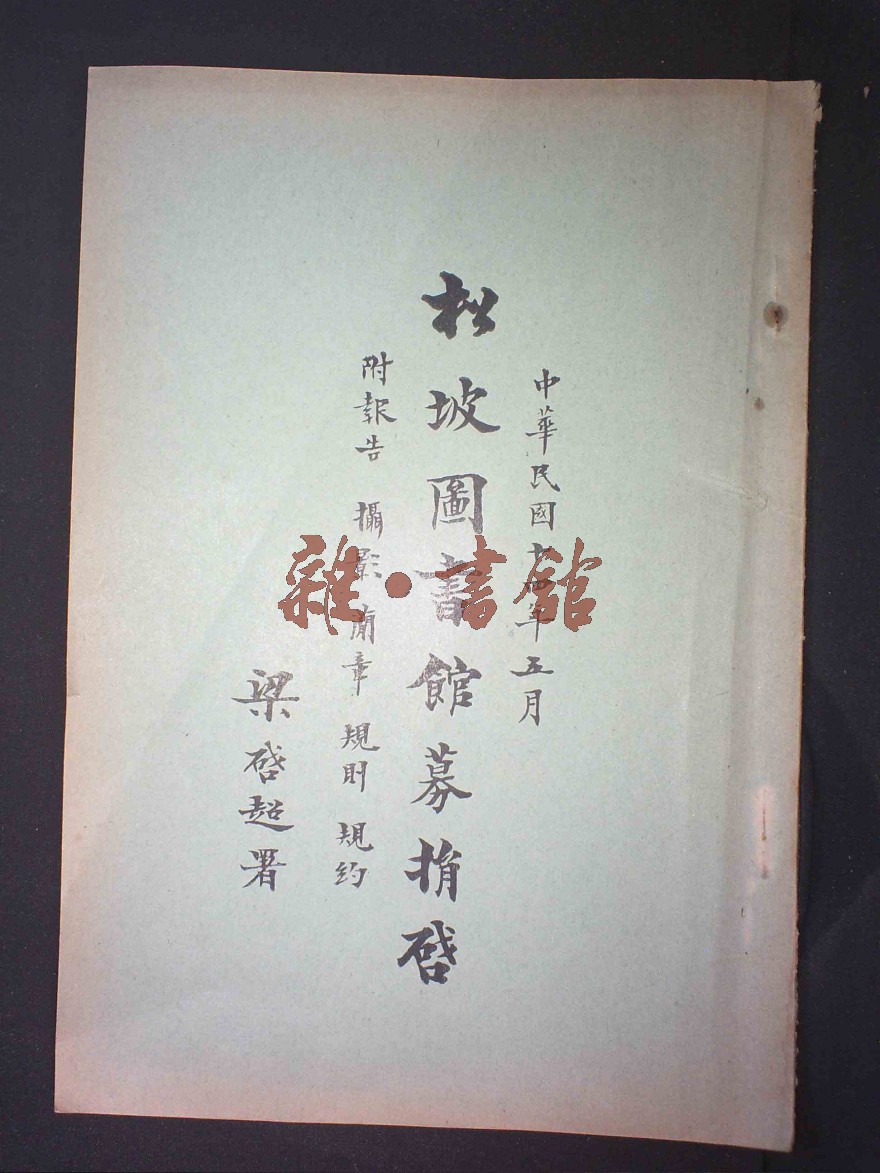 中華民國十四年五月
松坡圖書館募捐啓
附報告 攝影 簡章 規則 規約
梁啓超署
雜·書館